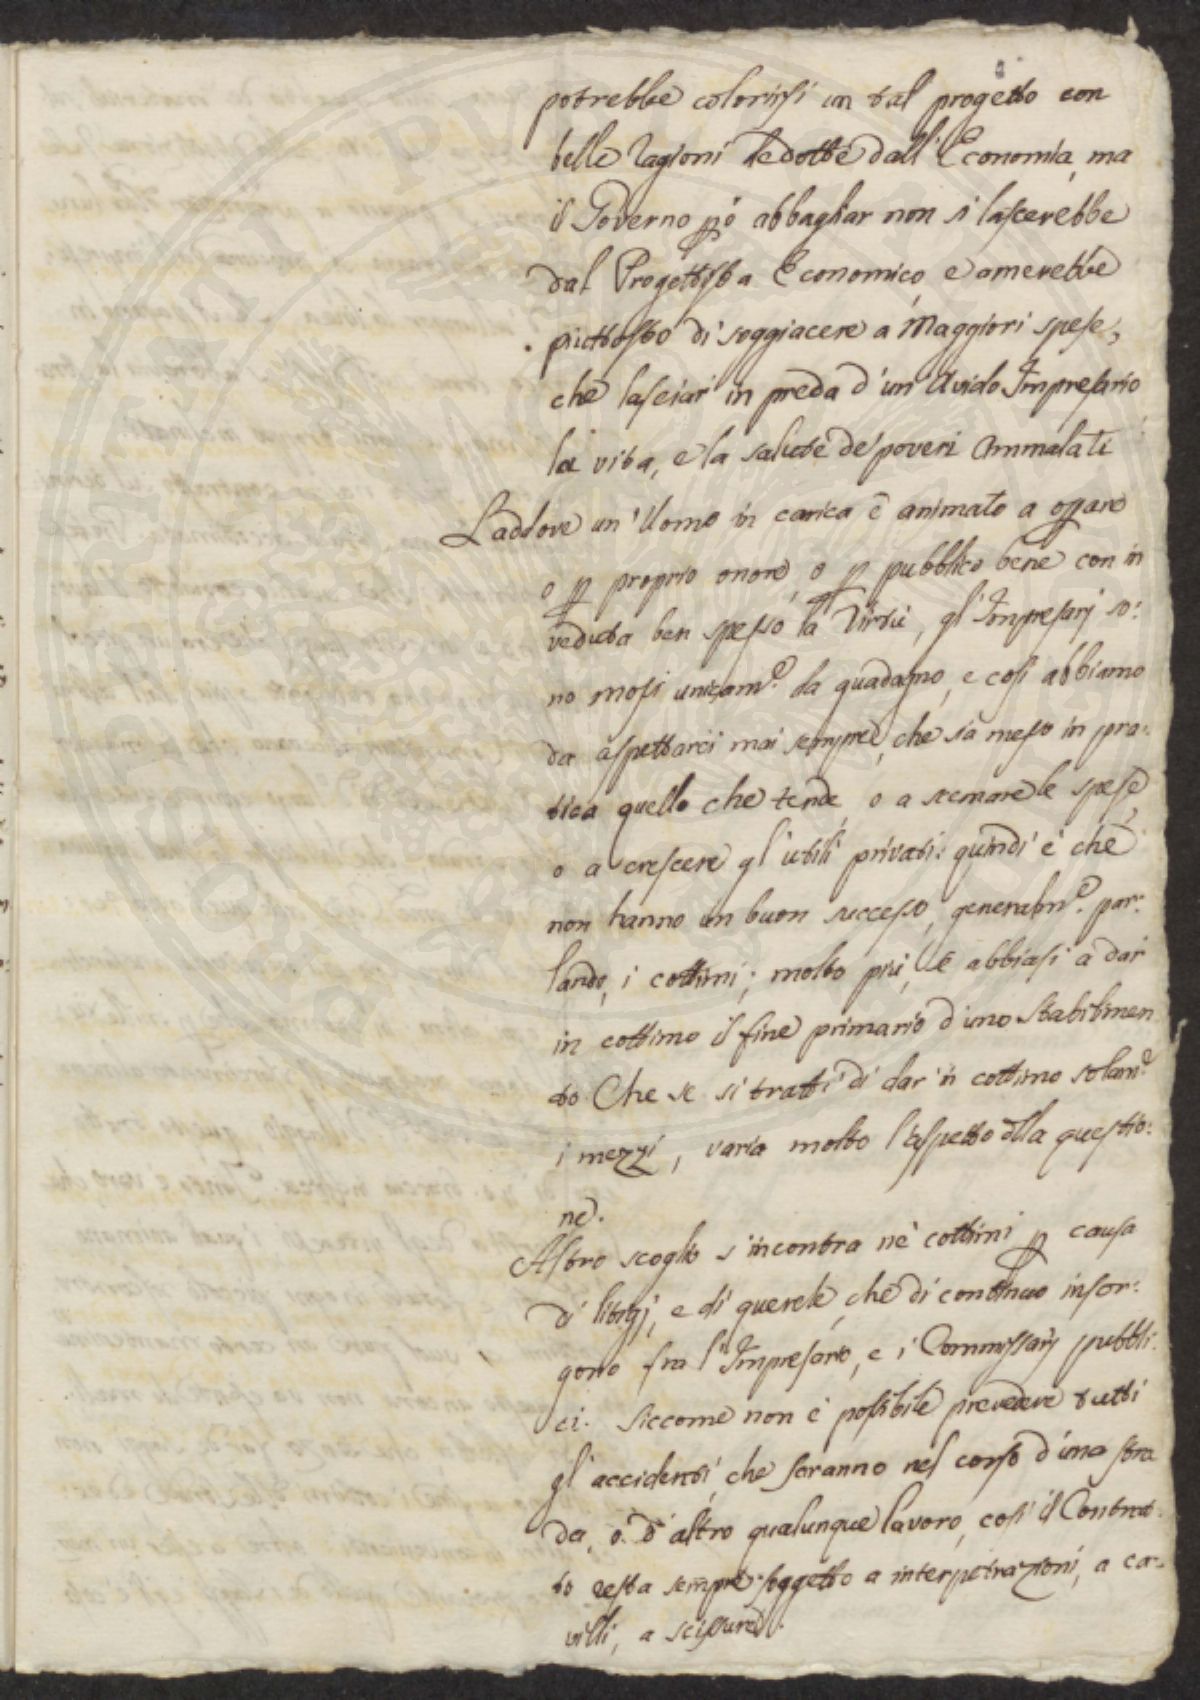 potrebbe colorirsi un tal progetto con
belle ragioni dedotte dall'Economia, ma
il Governo però abbagliar non si lascerebbe
dal Progettista Economico, e amerebbe
piuttosto di soggiacere a Maggiori spese,
che lasciar in preda d'un Avido Impresario
la vita, e la salute de' poveri Ammalati
Laddove un'Uomo in carica è animato a oprare
o p proprio onore, o p pubblico bene con in
veduta ben spesso la Virtù, gl'Impresarj so:
no mossi unicam.e da guadagno, e così abbiamo
da aspettarci mai sempre, che sia messo in pra:
tica quello che tende, o a scemare le spese,
o a crescere gl'utili privati: quindi è che
non hanno un buon successo, generalm.e par:
lando, i cottimi; molto più, se abbiasi a dar
in cottimo il fine primario d'uno stabilimen
to. Che se si tratti di dar in cottimo solam.e
i mezzi, varia molto l'aspetto dlla questio:
ne.
Altro scoglio s'incontra ne' cottimi p causa
di litigj, e di querele, che di continuo insor:
gono fra l'Impresario, e i Commissarj pubbli:
ci. Siccome non è possibile prevedere tutti
gl'accidenti, che saranno nel corso d'una stra
da, o d'altro qualunque lavoro, così il Contrat:
to resta sempre soggetto a interpetrazioni, a ca:
villi, a scissure.